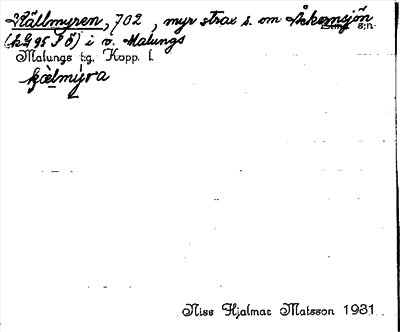 Källmyren, 702, myr strax s. om Åkernsjön
Lima s:n.
(kG 95 S ö) i v. Malungs
Malungs tg, Kopp. l.
kælmýra
Niss Hjalmar Matsson 1931